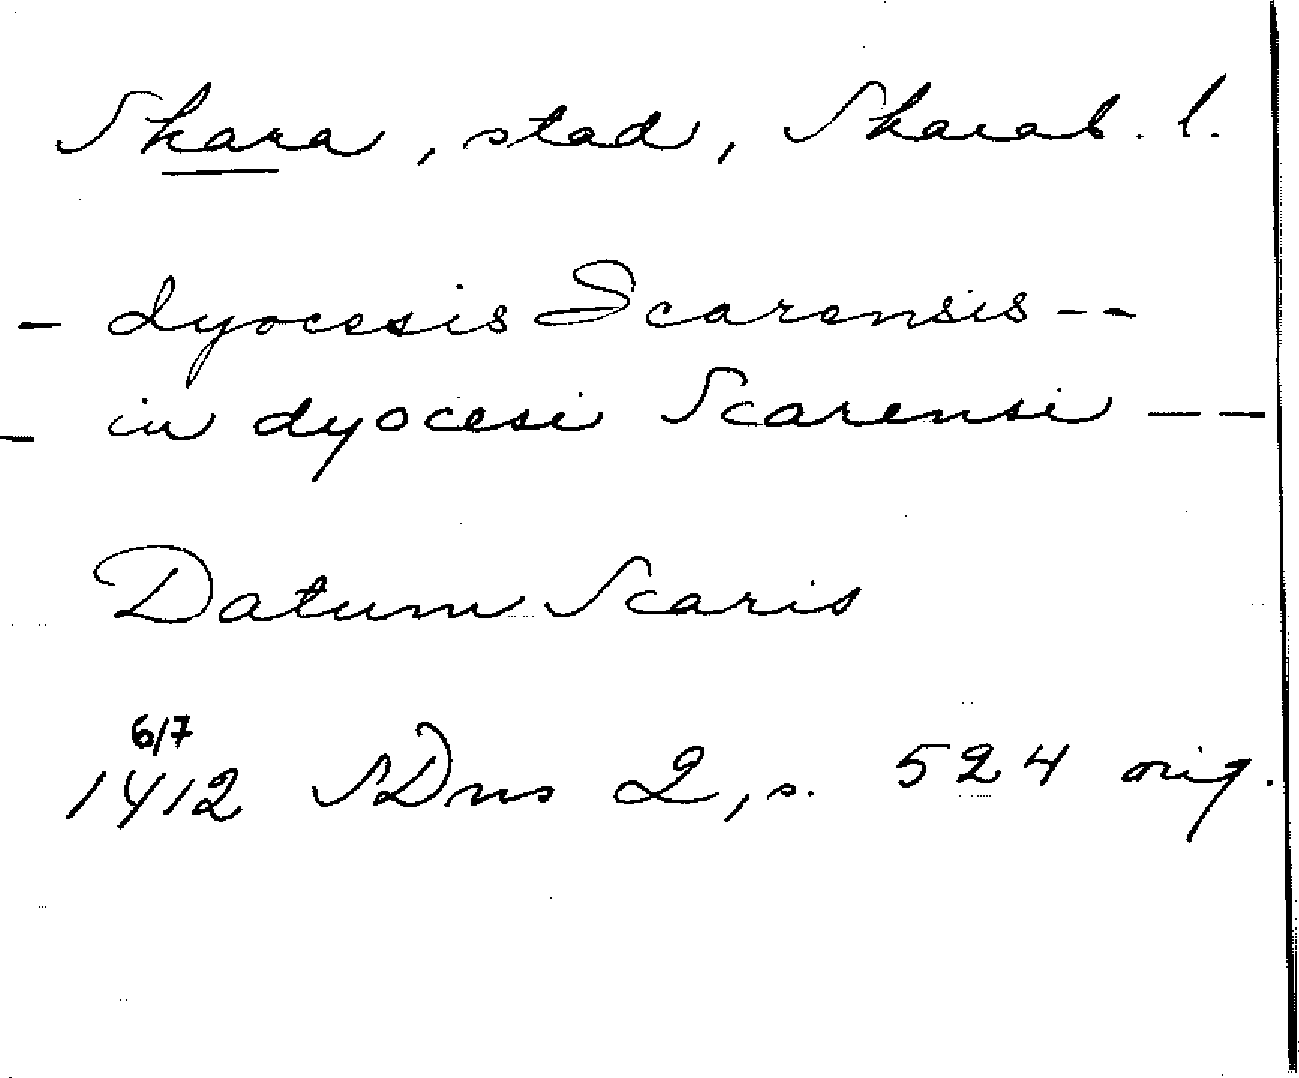 Skara, stad, Skarab. l.
- dyocesis Scarensis --
- in dyocesi Scarensi --
Datum Scaris
6/7
1412 SDns 2, s. 524 orig.